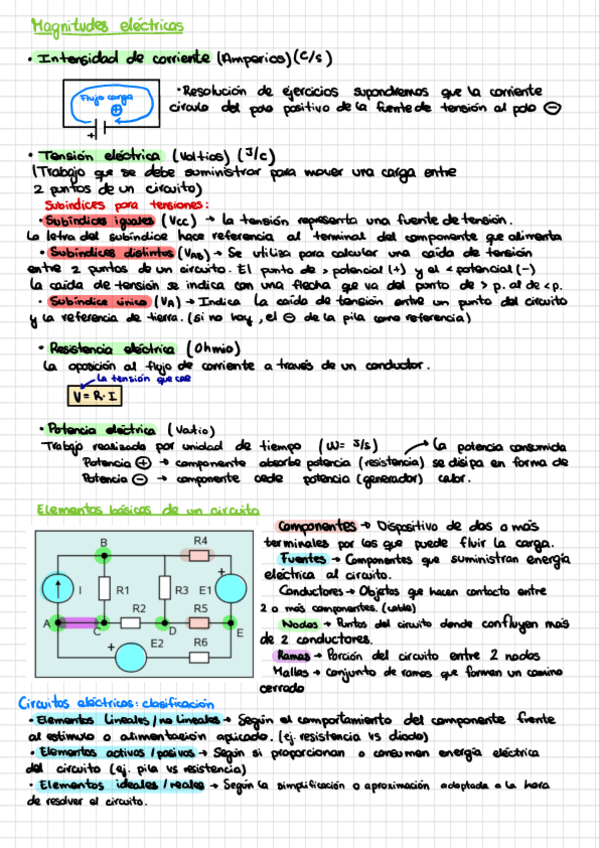 Magnitudes eléctricas
• Intensidad de corriente (Amperios) (C/s)
Flujo carga
+
+
• Resolución de ejercicios supondremos que la corriente
circula del polo positivo de la fuente de tensión al polo ⊖
• Tensión eléctrica (Voltios) (J/C)
(Trabajo que se debe suministrar para mover una carga entre
2 puntos de un circuito)
Subíndices para tensiones:
• Subíndices iguales (Vcc) → La tensión representa una fuente de tensión.
La letra del subíndice hace referencia al terminal del componente que alimenta
• Subíndices distintos (VAB) → Se utiliza para calcular una caída de tensión
entre 2 puntos de un circuito. El punto de > potencial (+) y el < potencial (-)
La caída de tensión se indica con una flecha que va del punto de > p. al de < p.
• Subíndice único (VA) → Indica la caída de tensión entre un punto del circuito
y la referencia de tierra. (si no hay, el ⊖ de la pila como referencia)
• Resistencia eléctrica (Ohmio)
La oposición al flujo de corriente a través de un conductor.
La tensión que cae
V = R · I
• Potencia eléctrica (Vatio)
Trabajo realizado por unidad de tiempo (W = J/s) → La potencia consumida
Potencia ⊕ → componente absorbe potencia (resistencia) se disipa en forma de
Potencia ⊖ → componente cede potencia (generador) calor.
Elementos básicos de un circuito
B
R4
+
I
R1
R3
E1
R2
R5
A
C
D
E
+
E2
R6
Componentes → Dispositivo de dos o más
terminales por los que puede fluir la carga.
Fuentes → Componentes que suministran energía
eléctrica al circuito.
Conductores → Objetos que hacen contacto entre
2 o más componentes. (cable)
Nodos → Puntos del circuito donde confluyen más
de 2 conductores.
Ramas → Porción del circuito entre 2 nodos
Mallas → Conjunto de ramas que forman un camino
cerrado
Circuitos eléctricos: clasificación
• Elementos Lineales / no Lineales → Según el comportamiento del componente frente
al estímulo o alimentación aplicado. (ej. resistencia vs diodo)
• Elementos activos / pasivos → Según si proporcionan o consumen energía eléctrica
del circuito (ej. pila vs resistencia)
• Elementos ideales / reales → Según la simplificación o aproximación adoptada a la hora
de resolver el circuito.